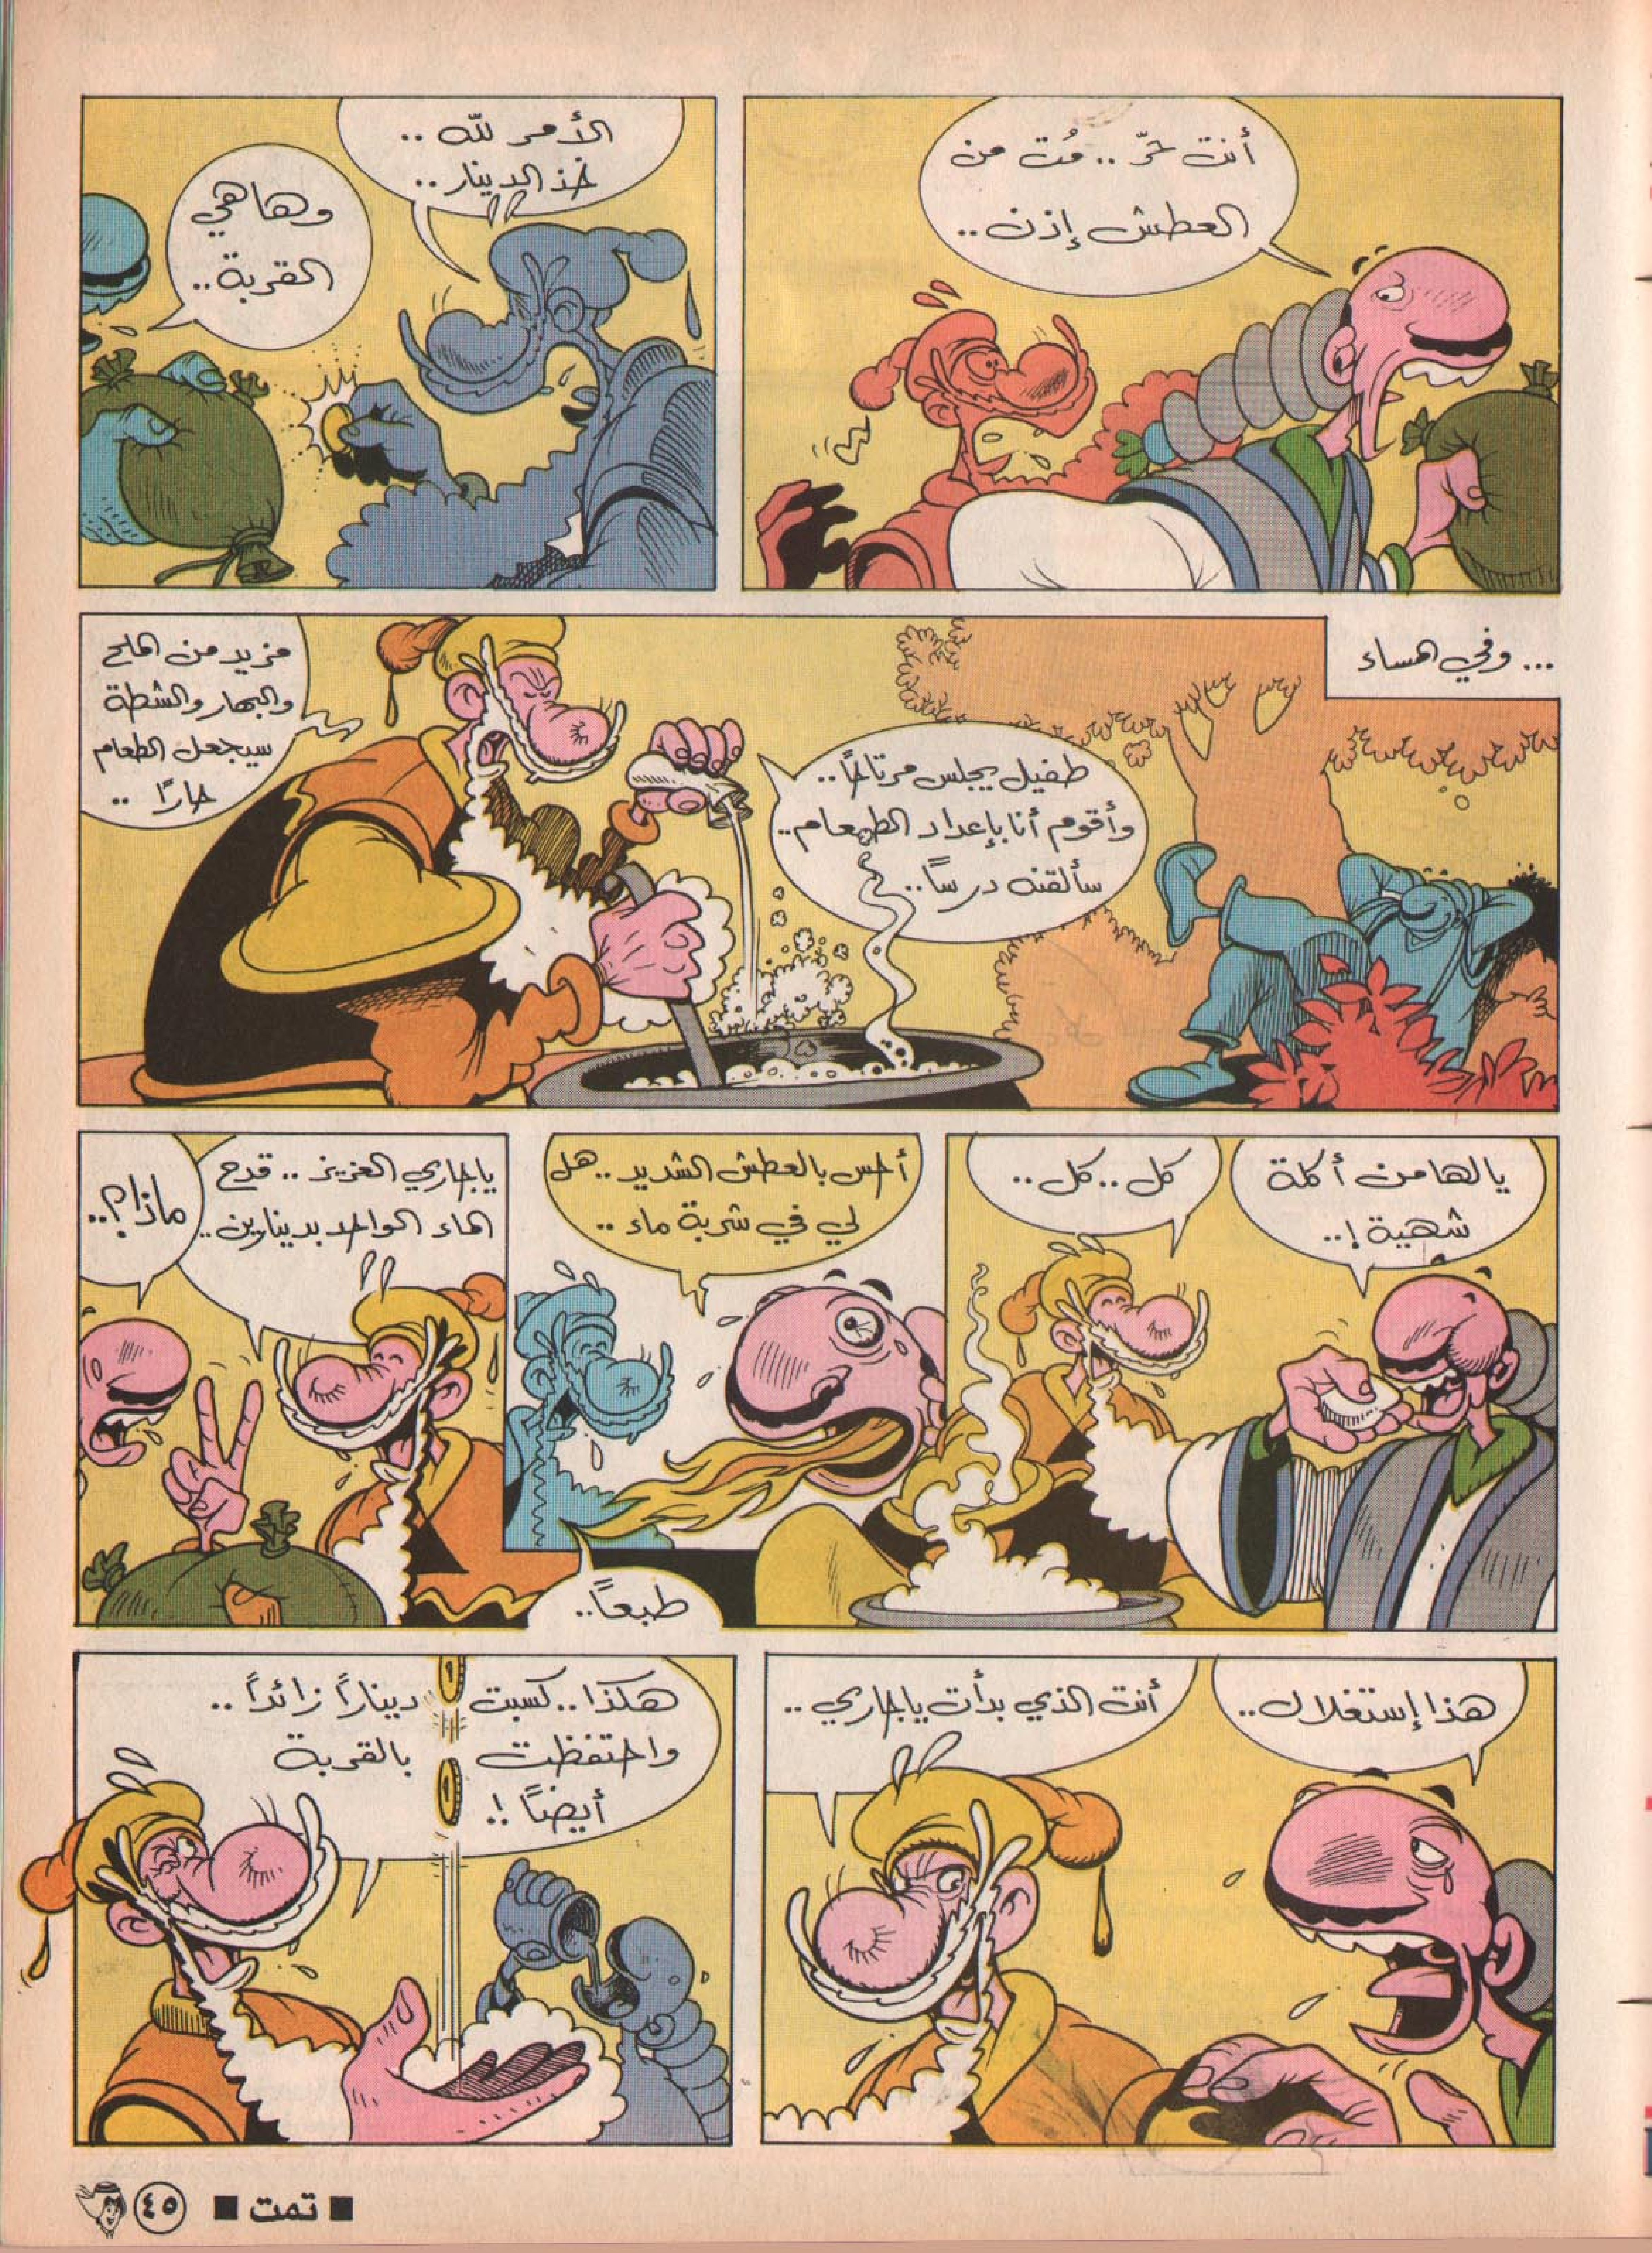 أنت حرّ .. مُت من
العطش إذن ..
الأمر لله ..
خذ الدينار ..
وهاهي
القربة ..
... وفي المساء
طفيل يجلس مرتاحاً ..
وأقوم أنا بإعداد الطعام ..
سألقنه درساً ..
مزيد من الملح
والبهار والشطة
سيجعل الطعام
حارًا ..
يالها من أكلة
شهية ! ..
كل .. كل ..
أحس بالعطش الشديد .. هل
لي في شربة ماء ..
طبعاً ..
ياجاري العزيز .. قدح
الماء الواحد بدينارين ..
ماذا ؟ ..
هذا إستغلال ..
أنت الذي بدأت ياجاري ..
هكذا .. كسبت ديناراً زائداً ..
واحتفظت بالقربة
أيضاً ! ..
■ تمت ■ ٤٥